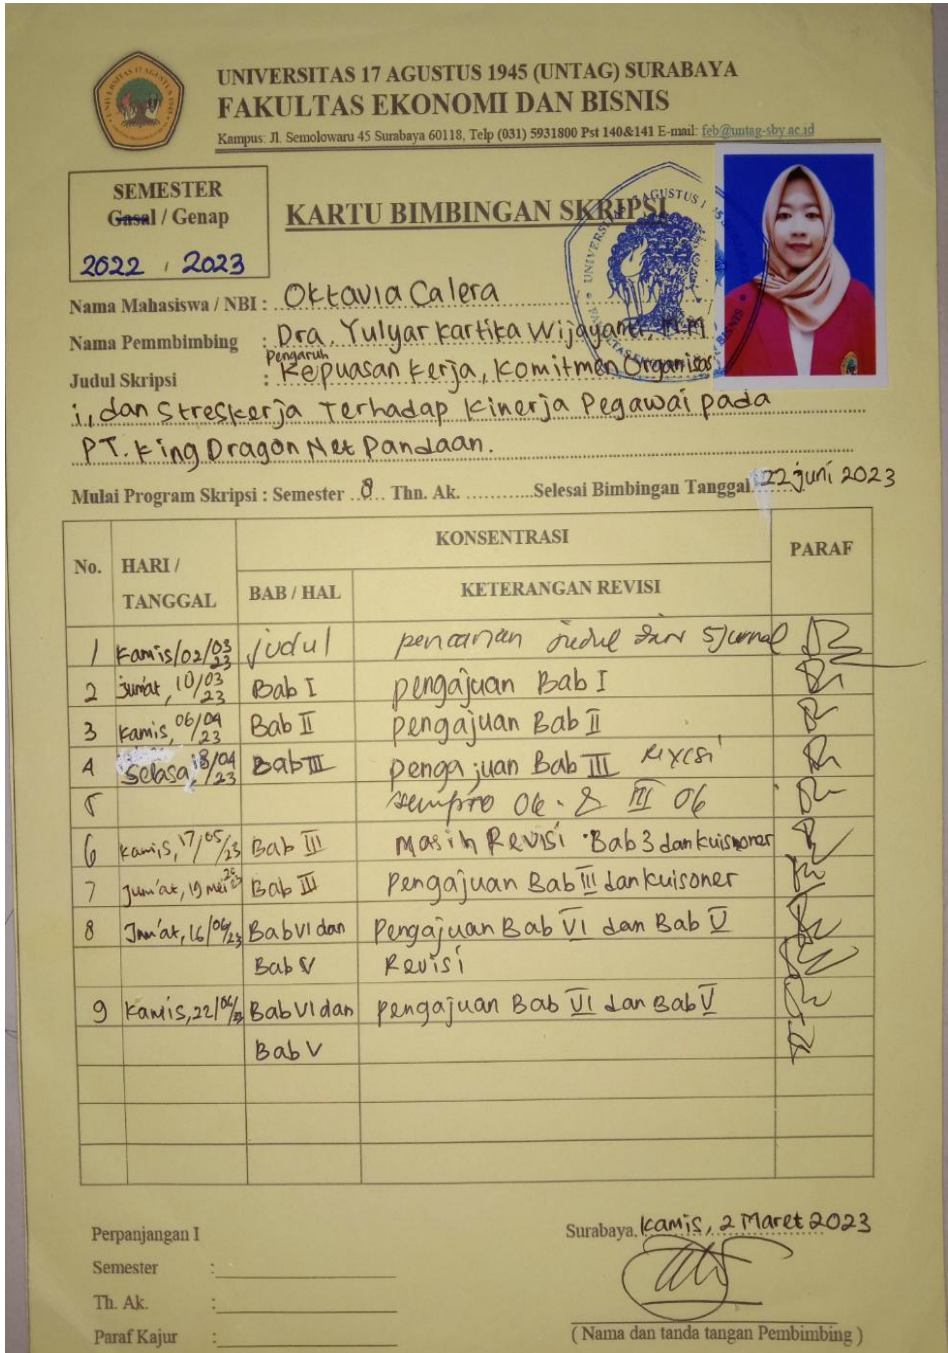 UNIVERSITAS 17 AGUSTUS 1945 (UNTAG) SURABAYA
FAKULTAS EKONOMI DAN BISNIS
Kampus: Jl. Semolowaru 45 Surabaya 60118, Telp (031) 5931800 Pst 140&141 E-mail: feb@untag-sby.ac.id
SEMESTER
Gasal / Genap
2022 / 2023
KARTU BIMBINGAN SKRIPSI
Nama Mahasiswa / NBI : Oktavia Calera
Nama Pemmbimbing : Dra. Yulyar Kartika Wijayanti, M.M
Pengaruh
Judul Skripsi : Kepuasan Kerja, Komitmen Organisas
i, dan Streskerja Terhadap Kinerja Pegawai pada
PT. King Dragon Net Pandaan.
Mulai Program Skripsi : Semester 8 Thn. Ak. ............Selesai Bimbingan Tanggal 22 juni 2023
No. HARI / TANGGAL KONSENTRASI PARAF
BAB / HAL KETERANGAN REVISI
1 Kamis/02/03/23 judul pencarian judul dari 5 jurnal
2 Jum'at, 10/03/23 Bab I pengajuan Bab I
3 Kamis, 06/04/23 Bab II pengajuan Bab II
4 Selasa, 18/04/23 Bab III pengajuan Bab III
5 sempro 06
6 Kamis, 17/05/23 Bab III Masih Revisi Bab 3 dan kuisnoner
7 Jum'at, 19 mei 23 Bab III Pengajuan Bab III dan kuisoner
8 Jum'at, 16/06/23 Bab VI dan Pengajuan Bab VI dan Bab V
Bab V Revisi
9 Kamis, 22/06/23 Bab VI dan pengajuan Bab VI dan Bab V
Bab V
Perpanjangan I
Semester :
Th. Ak. :
Paraf Kajur :
Surabaya, Kamis, 2 Maret 2023
( Nama dan tanda tangan Pembimbing )